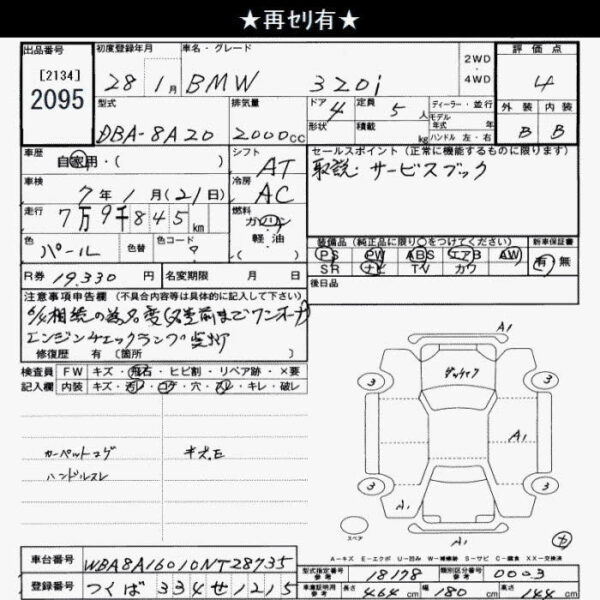 ★再セリ有★
出品番号 初度登録年月 車名・グレード 評価点
[2134]
2095
28 1月 BMW 320i 2WD・4WD 4
型式 排気量 ドア 4 定員 5人 ディーラー・並行 外装 内装
DBA-8A20 2000cc 形状 積載 kg モデル年式 年 ハンドル 左・右 B B
車歴 自家用・( ) シフト AT セールスポイント(正常に機能するものに限ります)
取説 サービスブック
車検 7年1月(21日) 冷房 AC
走行 7万9千845km 燃料 ガソリン 軽油
色 パール 色替 色コード
装備品(純正品に限り○をつけてください) 新車保証書
PS PW ABS エアB AW 有・無
SR ナビ TV カワ
R券 19,330円 名変期限 月 日 後日品
注意事項申告欄(不具合内容等は具体的に記入して下さい)
相続の為名変(名変前までワンオーナ)
エンジンチェックランプ
修復歴 有〔箇所 〕
検査員 FW キズ・飛石・ヒビ割・リペア跡・×要
記入欄 内装 キズ・汚レ・コゲ・穴・スレ・キレ・破レ
カーペットコゲ
ハンドルスレ
A1
3 3
A1
3 3
A1
A1
スペア
A-キズ E-エクボ U-凹み W-補修跡 S-サビ C-腐食 XX-交換済
車台番号 WBA8A16010NT28735 型式指定番号 参考 18178 類別区分番号 参考 0003
登録番号 つくば 334 せ 1215 車庫証明用 参考 長さ 464cm 幅 180cm 高さ 144cm